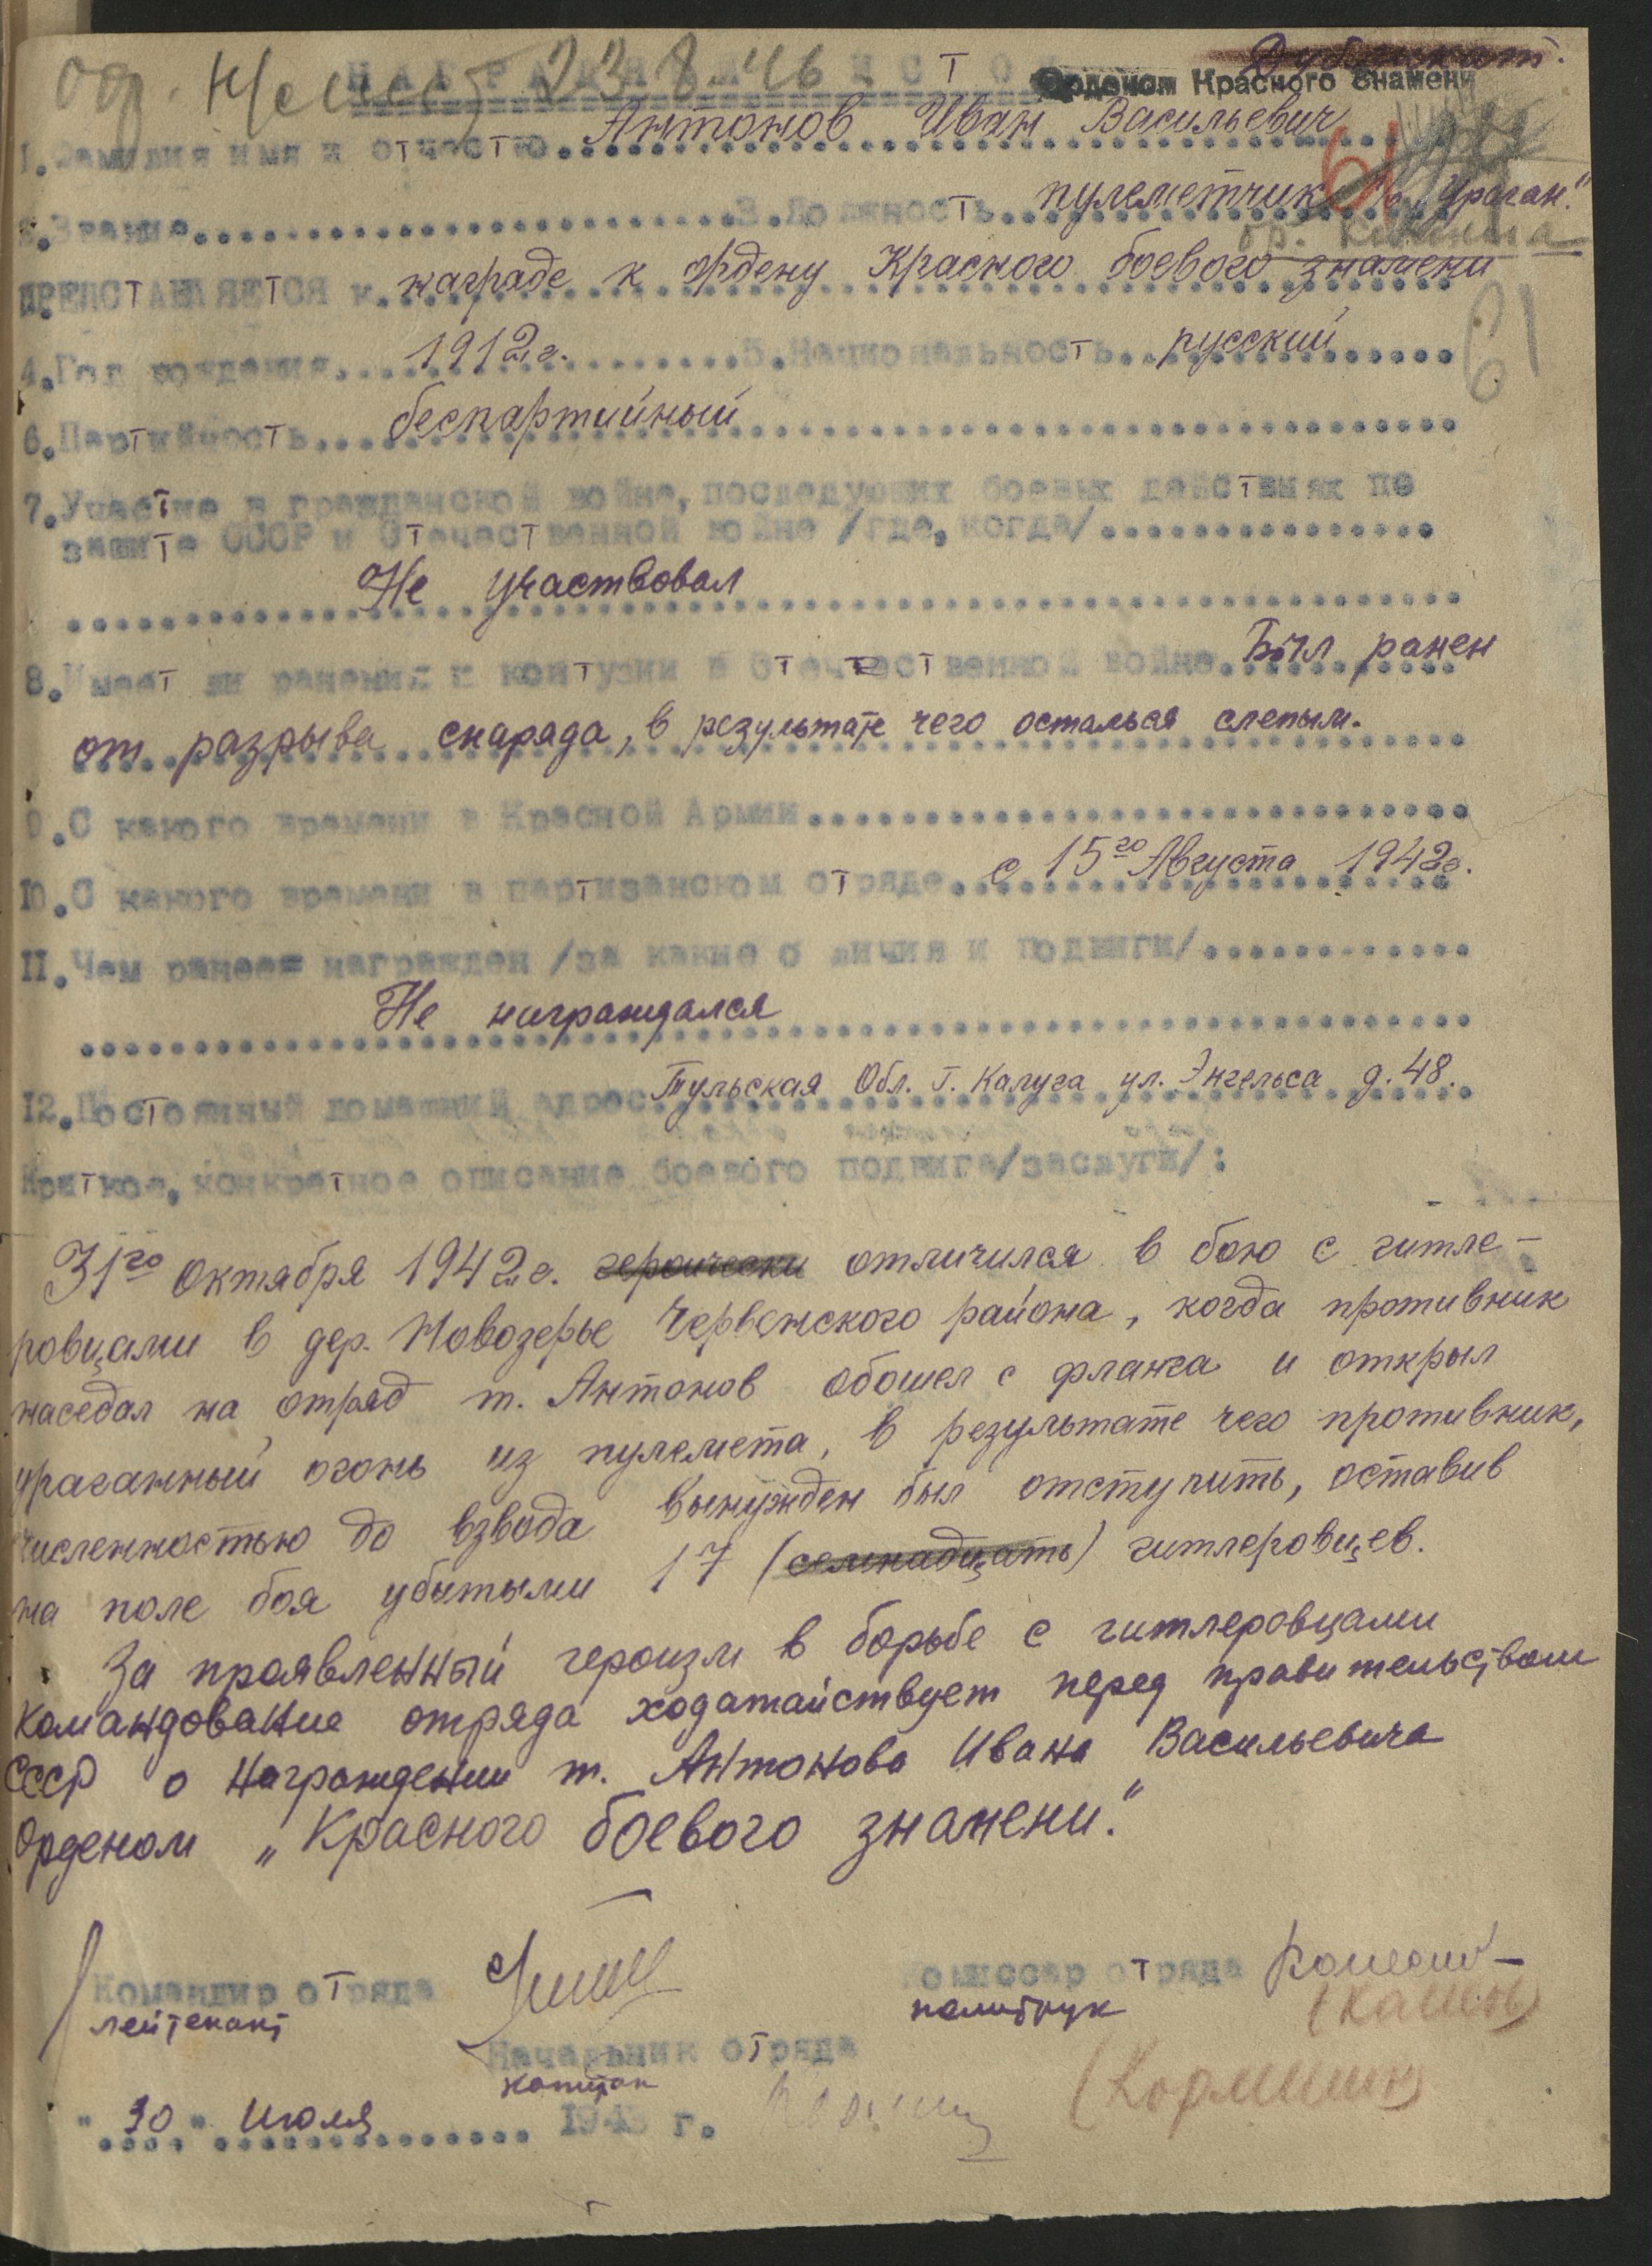 Дубликат.
НАГРАДНОЙ ЛИСТ
23 8 46
Орденом Красного Знамени
1.Фамилия имя и отчество Антонов Иван Васильевич
61
2.Звание 3.Должность пулеметчик п/о „Ураган."
ПРЕДСТАВЛЯЕТСЯ к награде к ордену Красного боевого знамени
61
4.Год рождения 1912г. 5.Национальность русский
6.Партийность беспартийный
7.Участие в гражданской войне, последующих боевых действиях по
защите СССР и Отечественной войне /где, когда/
Не участвовал
8.Имеет ли ранения и контузии в Отечественной войне Был ранен
от разрыва снаряда, в результате чего осталься слепым.
9.С какого времени в Красной Армии
10.С какого времени в партизанском отряде с 15го Августа 1942г.
II.Чем ранее награжден /за какие о личия и подвиги/
Не награждался
12.Постоянный домашний адрес Тульская Обл. г. Калуга ул. Энгельса д.48.
Краткое, конкретное описание боевого подвига/заслуги/:
31го Октября 1942г. героически отличился в бою с гитле-
ровцами в дер. Новозерье Червенского района, когда противник
наседал на отряд т. Антонов обошел с фланга и открыл
ураганный огонь из пулемета, в результате чего противник,
численностью до взвода вынужден был отступить, оставив
на поле боя убитыми 17 (семнадцать) гитлеровцев.
За проявленный героизм в борьбе с гитлеровцами
Командование отряда ходатайствует перед правительством
СССР о награждении т. Антонова Ивана Васильевича
Орденом „Красного боевого знамени."
Командир отряда Комиссар отряда
лейтенант политрук
Начальник отряда
капитан
"30" июля 1943 г.